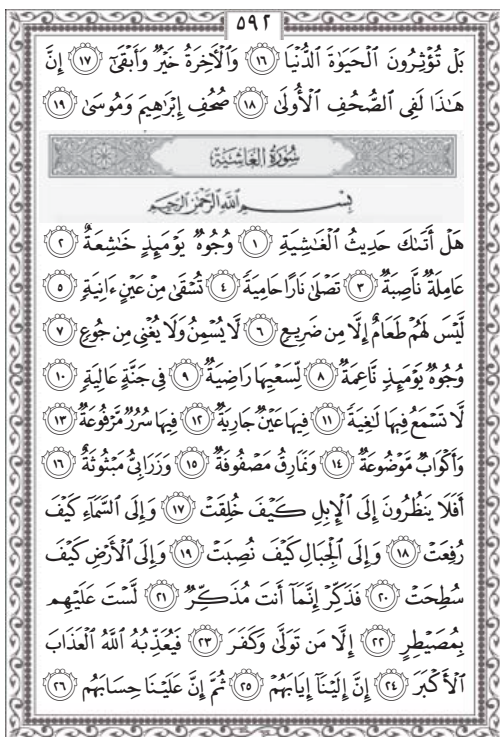 ٥٩٢
بَلْ تُؤْثِرُونَ ٱلْحَيَوٰةَ ٱلدُّنْيَا ١٦ وَٱلْأَخِرَةُ خَيْرٌ وَأَبْقَىٰٓ ١٧ إِنَّ
هَٰذَا لَفِى ٱلصُّحُفِ ٱلْأُولَىٰ ١٨ صُحُفِ إِبْرَٰهِيمَ وَمُوسَىٰ ١٩
سُورَةُ الغَاشِيَةِ
بِسْمِ اللَّهِ الرَّحْمَٰنِ الرَّحِيمِ
هَلْ أَتَىٰكَ حَدِيثُ ٱلْغَٰشِيَةِ ١ وُجُوهٌ يَوْمَئِذٍ خَٰشِعَةٌ ٢
عَامِلَةٌ نَّاصِبَةٌ ٣ تَصْلَىٰ نَارًا حَامِيَةً ٤ تُسْقَىٰ مِنْ عَيْنٍ ءَانِيَةٍ ٥
لَّيْسَ لَهُمْ طَعَامٌ إِلَّا مِن ضَرِيعٍ ٦ لَّا يُسْمِنُ وَلَا يُغْنِى مِن جُوعٍ ٧
وُجُوهٌ يَوْمَئِذٍ نَّاعِمَةٌ ٨ لِّسَعْيِهَا رَاضِيَةٌ ٩ فِى جَنَّةٍ عَالِيَةٍ ١٠
لَّا تَسْمَعُ فِيهَا لَٰغِيَةً ١١ فِيهَا عَيْنٌ جَارِيَةٌ ١٢ فِيهَا سُرُرٌ مَّرْفُوعَةٌ ١٣
وَأَكْوَابٌ مَّوْضُوعَةٌ ١٤ وَنَمَارِقُ مَصْفُوفَةٌ ١٥ وَزَرَابِىُّ مَبْثُوثَةٌ ١٦
أَفَلَا يَنظُرُونَ إِلَى ٱلْإِبِلِ كَيْفَ خُلِقَتْ ١٧ وَإِلَى ٱلسَّمَآءِ كَيْفَ
رُفِعَتْ ١٨ وَإِلَى ٱلْجِبَالِ كَيْفَ نُصِبَتْ ١٩ وَإِلَى ٱلْأَرْضِ كَيْفَ
سُطِحَتْ ٢٠ فَذَكِّرْ إِنَّمَآ أَنتَ مُذَكِّرٌ ٢١ لَّسْتَ عَلَيْهِم
بِمُصَيْطِرٍ ٢٢ إِلَّا مَن تَوَلَّىٰ وَكَفَرَ ٢٣ فَيُعَذِّبُهُ ٱللَّهُ ٱلْعَذَابَ
ٱلْأَكْبَرَ ٢٤ إِنَّ إِلَيْنَآ إِيَابَهُمْ ٢٥ ثُمَّ إِنَّ عَلَيْنَا حِسَابَهُم ٢٦